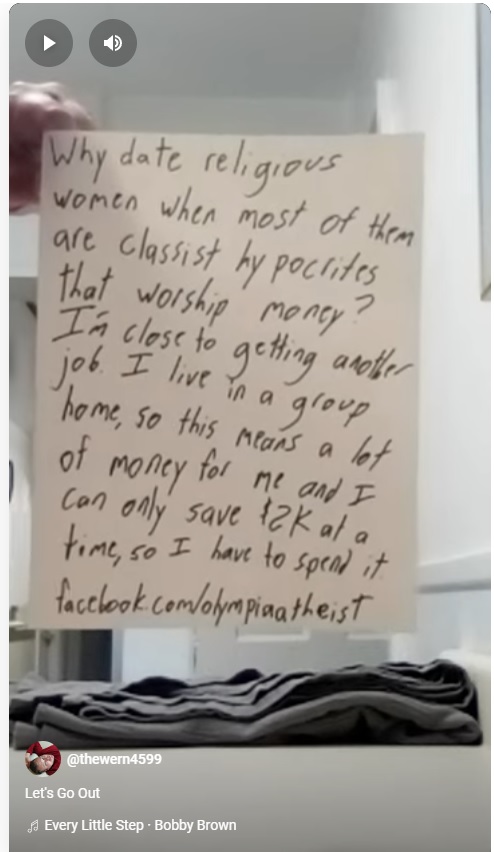 Why date religious
women when most of them
are classist hypocrites
that worship money?
I'm close to getting another
job. I live in a group
home, so this means a lot
of money for me and I
can only save $2K at a
time, so I have to spend it.
facebook.com/olympiaatheist
@thewern4599
Let's Go Out
Every Little Step · Bobby Brown